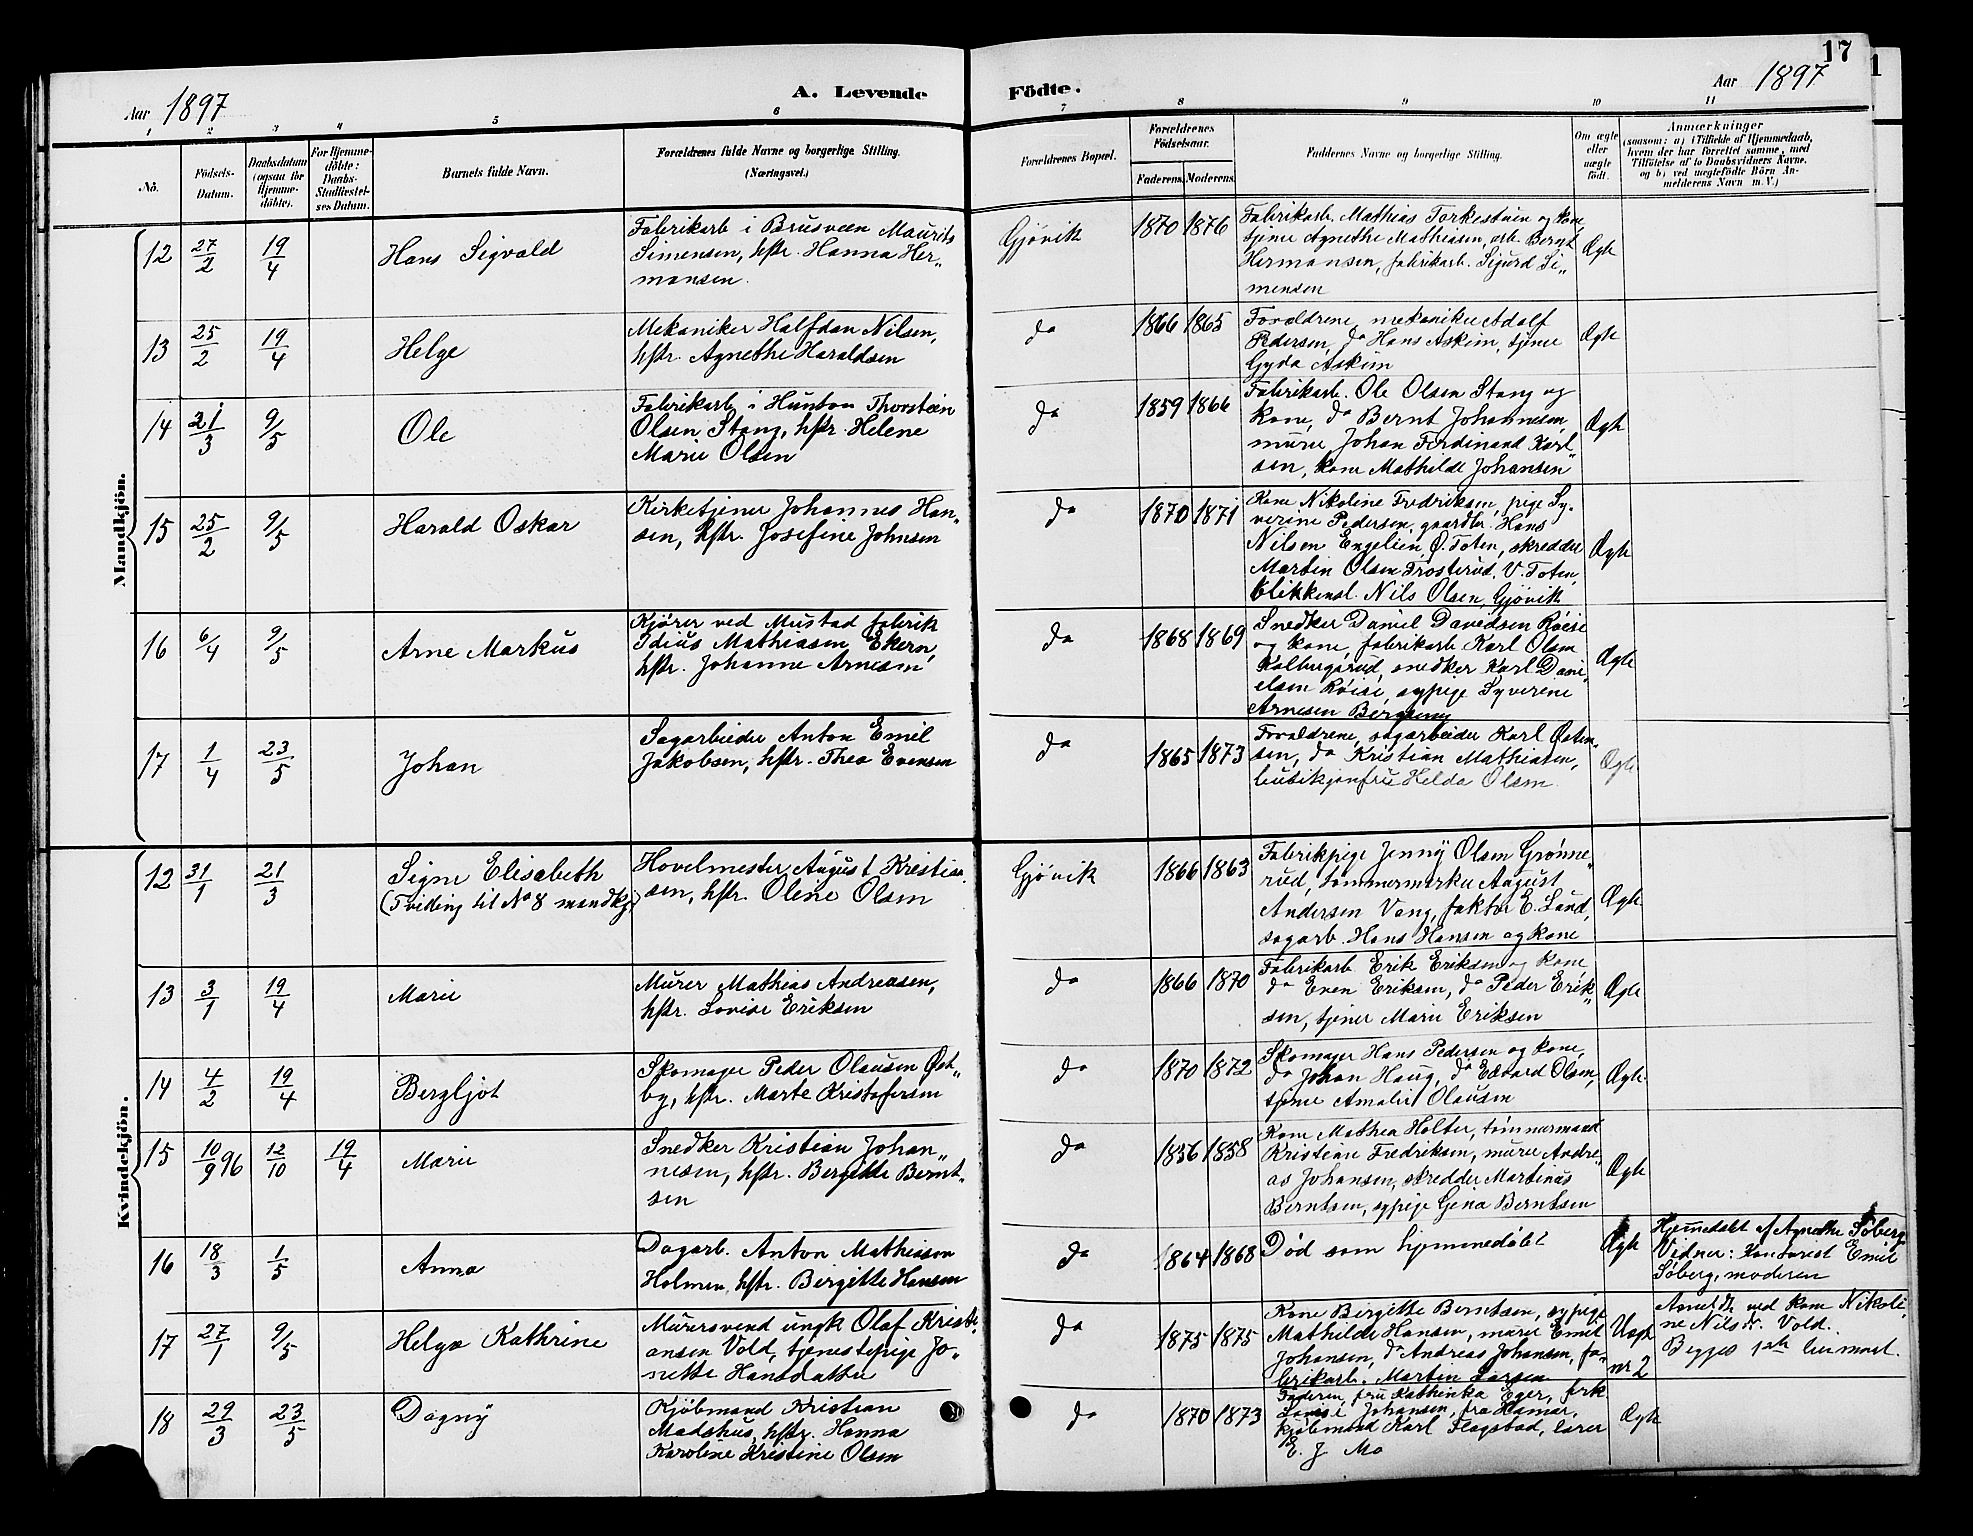 17
Aar 1897
A. Levende
Födte.
Aar 1897
1 2 3 4 5 6 7 8 9 10 11
No.
Födsels-
Datum.
Daabsdatum
(ogsaa for
Hjemme-
döbte).
For Hjemme-
döbte:
Daabs-
Stadfæstel-
ses Datum.
Barnets fulde Navn.
Forældrenes fulde Navne og borgerlige Stilling.
(Næringsvei.)
Forældrenes Bopæl.
Forældrenes
Födselsaar.
Faderens. Moderens.
Faddernes Navne og borgerlige Stilling.
Om ægte
eller
uægte
födt.
Anmærkninger
(saasom: a) i Tilfælde af Hjemmedaab,
hvem der har forrettet samme, med
Tilföielse af to Daabsvidners Navne,
og b) ved uægtefödte Börn An-
melderens Navn m. V.)
Mandkjön.
12 27/2 19/4 Hans Sigvald
Fabrikarb i Brusveen Maurits
Simensen, hstr. Hanna Her„
mansen.
Gjøvik 1870 1876
Fabrikarb. Mathias Torkestuen og kone,
tjener Agnethe Mathiesen, arb. Bernt
Hermansen, fabrikarb. Sigurd Si„
mensen
Ægte
13 25/2 19/4 Helge
Mekaniker Halfdan Nilsen,
hstr. Agnethe Haraldsen
do 1866 1865
Forældrene, mekaniker Adolf
Pedersen, do Hans Askim, tjener
Gyda Askim
Ægte
14 21/3 9/5 Ole
Fabrikarb i Hunton Thorstein
Olsen Stang, hstr. Helene
Marie Olsen
do 1859 1866
Fabrikarb. Ole Olsen Stang og
kone, do Bernt Johannesen,
murer Johan Ferdinand Karl„
sen, kone Mathilde Johansen
Ægte
15 25/2 9/5 Harald Oskar
Kirketjener Johannes Han„
sen, hstr. Josefine Johnsen
do 1870 1871
Kone Nikoline Fredriksen, pige Sy„
verine Pedersen, gaardbr. Hans
Nilsen Engelien, Ø. Toten, skredder
Martin Olsen Frosterud, V. Toten,
blikkensl. Nils Olsen, Gjøvik
Ægte
16 6/4 9/5 Arne Markus
Kjører ved Mustad fabrik
Idius Mathiasen Ekern,
hstr. Johanne Arnesen
do 1868 1869
Snedker Daniel Davidsen Røise
og kone, fabrikarb Karl Olsen
Kalbergsrud, snedker Karl Dani„
elsen Røise, sypige Syverine
Arnesen
Ægte
17 1/4 23/5 Johan
Sagarbeider Anton Emil
Jakobsen, hstr. Thea Evensen
do 1865 1873
Forældrene, sagarbeider Karl Osten„
sen, do Kristian Mathiasen,
butikjomfru Helda Olsen.
Ægte
Kvindekjön.
12 31/1 21/3 Signe Elisabeth
(Tvilling til No 8 mandkj.)
Hovelmester August Kristian„
sen, hstr. Oline Olsen
Gjøvik 1866 1863
Fabrikpige Jenny Olsen Grønne„
rud, tømmermerker August
Andersen Vang, faktor E. Lund,
sagarb. Hans Hansen og kone
Ægte
13 3/1 19/4 Marie
Murer Mathias Andreasen,
hstr. Lovise Eriksen
do 1866 1870
Fabrikarb Erik Eriksen og kone
do Even Eriksen, do Peder Erik„
sen, tjener Marie Eriksen
Ægte
14 4/2 19/4 Bergljot
Skomager Peder Olausen Øst„
by, hstr. Marte Kristofersen
do 1870 1872
Skomager Hans Pedersen og kone,
do Johan Haug, do Edvard Olsen,
tjener Amalie Olausen
Ægte
15 10/9 96 12/10 19/4 Marie
Snedker Kristian Johan„
nesen, hstr. Bergitte Bernt„
sen
do 1856 1858
Kone Mathea Holter, tømmermand
Kristian Fredriksen, murer Andre„
as Johansen, skredder Martinus
Berntsen, sypige Gina Berntsen
Ægte
16 18/3 1/5 Anna
Dagarb. Anton Mathiasen
Holmen, hstr. Birgitte Hansen
do 1864 1868
Død som hjemmedøbt
Ægte
Hjemedøbt af Agnethe Søberg
Vidner: Kontorist Emil
Søberg, moderen
17 27/1 9/5 Helga Kathrine
Murersvend ungk Olaf Kristi„
ansen Vold, tjenestepige Jo„
nette Hansdatter
do 1875 1875
Kone Birgitte Berntsen, sypige
Mathilde Hansen, murer Emil
Johansen, do Andreas Johansen, fa„
brikarb. Martin Larsen
Uægte
nr 2
Anmeldt ved kone Nikoli„
ne Nilsdr. Vold.
Begges 1ste leiermaal.
18 29/3 23/5 Dagny
Kjøbmand Kristian
Madshus, hstr. Hanna
Karoline Kristine Olsen
do 1870 1873
Faderen, fru Kathinka Eger, frk
Lovise Johansen, fra Hamar,
kjøbmand Karl Flagstad, lærer
E. J. Mo
Ægte